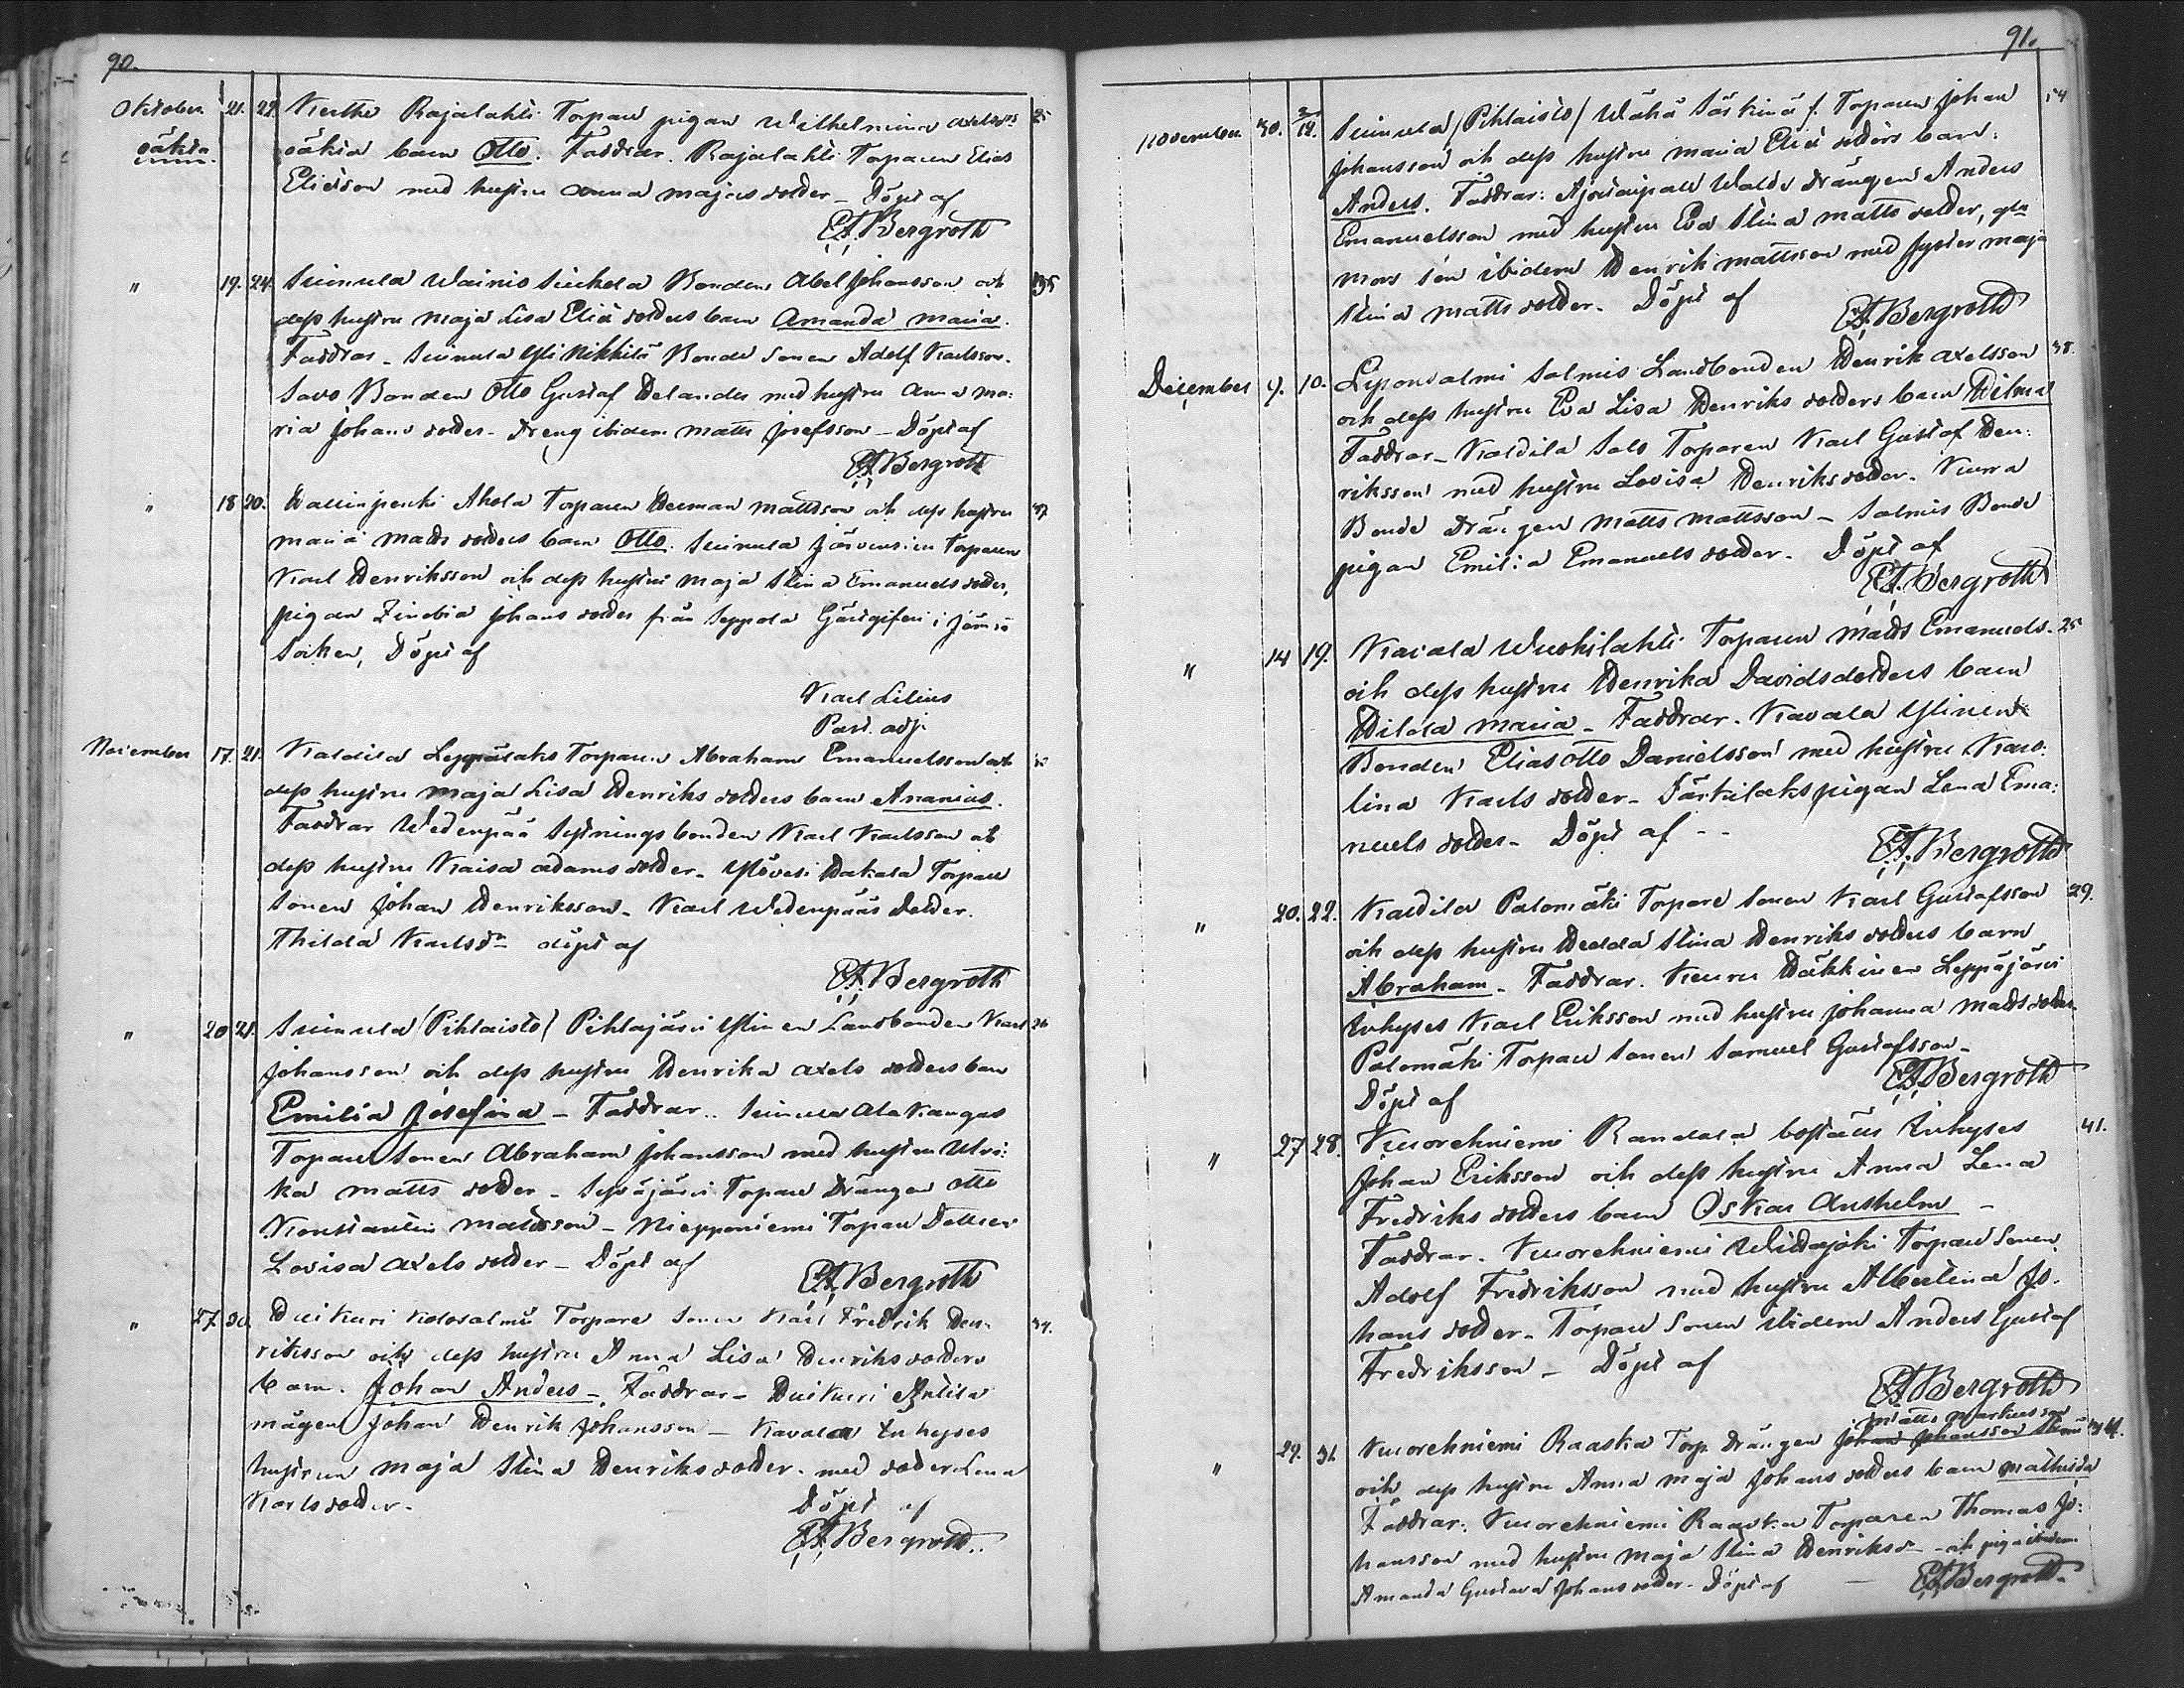 90.
Oktober 21. 22. Keuthe Rajalahti Torpare pigan Wilhelmina Axelsd:rs 25
oäkta oäkta barn Otto. Faddrar. Rajalahti Torparen Elias
Eliasson med hustru Anna Majas dotter – Döpt af
E.A. Bergroth
" 19. 24. Suinula Wainio Siukola Bonden Abel Johansson och 35
dess hustru Maja Lisa Eliä dotters barn Amanda Maria.
Faddrar – Suinula Yli Nikkilä Bonde Sonen Adolf Karlsson.
Savo Bonden Otto Gustaf Helander med hustru Anna Ma:
ria Johans dotter – Dreng ibidem Matts Josefsson – Döpt af
E.A. Bergroth
" 18 20. Wallinpenki Ahola Torparen Herman Mattsson och dess hustru 37
Maria Matts dotters barn Otto. Suinula Järvensivu Torparen
Karl Henriksson och dess hustru Maja Stina Emanuels dotter,
pigan Zinobia Johans dotter från Seppola Gästgifveri i Jämsä
Socken, Döpt af
Karl Lilius
Past. adj.
November 17. 21. Kaldila Leppälaks Torparen Abraham Emanuelsson och
dess hustru Maja Lisa Henriks dotters barn Ananias.
Faddrar Wedenpää Sytningsbonden Karl Karlsson och
dess hustru Kaisa Adams dotter. Ylövesi Hakala Torpare
Sonen Johan Henriksson. Karl Wedenpääs dotter.
Thilda Karlsd:r döpt af
E.A. Bergroth
" 20 21. Suinula (Pihlaisto) Pihlajäsvi Ylinen Landbonden Karl 36
Johansson och dess hustru Henrika Axels dotters barn
Emilia Josefina – Faddrar.. Suinula Alakangas
Torpare Sonen Abraham Johansson med hustru Ulri:
ka Matts dotter – Sepäjärvi Torpare Drängen Otto
Konstantin Mattsson – Nieppôniemi Torpare Dottren
Lovisa Axels dotter – Döpt af
E.A. Bergroth
" 27 30. Huikuri Kolosalmi Torpare Sonen Karl Fredrik Hen: 34.
riksson och dess hustru Anna Lisa Henriks dotters
barn. Johan Anders – Faddrar – Huikuri Anttila
mågen Johan Henrik Johansson – Kavala Inhyses
hustrun Maja Stina Henriks dotter. med dotter Lena
Karls dotter.
Döpt af
E.A. Bergroth..
91.
November 30. 2/12. Suinula (Pihlaisto) Wähä Särkinä f. Torparen Johan 54
Johansson och dess hustru Maria Eliä dotters barn.
Anders. Faddrar: Walds drängen Anders
Emanuelsson med hustru Eva Stina Matts dotter,
mors son ibidem Henrik Mattsson med syster Maja
Stina Matts dotter. Döpt af
E.A. Bergroth
December 9. 10. Lysonsalmi Salmis Landbonden Henrik Axelsson 38.
och dess hustru Eva Lisa Henriks dotters barn Hilma
Faddrar – Kaldila Salo Torparen Karl Gustaf Hen:
riksson med hustru Lovisa Henriksdotter. Kurra
Bonde Drängen Matts Mattsson – Salmis Bonde
pigan Emilia Emanuels dotter. Döpt af
E.A. Bergroth
" 14 19. Kavala Wuohilahti Torparen Matts Emanuels. 25
och dess hustru Henrika Davidsdotters barn
Hilda Maria – Faddrar. Kavala Ylinen
Bonden Elias Otto Danielsson med hustru Karo:
lina Karls dotter – Särkilaks pigan Lena Ema:
nuels dotter – Döpt af - -
E.A. Bergroth
" 20. 22. Kaldila Palomäki Torpare Sonen Karl Gustafsson 29.
och dess hustru Hedda Stina Henriks dotters barn
Abraham – Faddrar. Keuru Häkkinen Leppäjärvi
Inhyses Karl Eriksson med hustru Johanna Matts dotter
Palomäki Torpare Sonen Samuel Gustafsson –
Döpt af
E.A. Bergroth
" 27 28. Kuorehniemi Randala boställe Inhyses 41.
Johan Eriksson och dess hustru Anna Lena
Fredriks dotters barn Oskar Anshelm –
Faddrar. Kuorehniemi Wiidajoki Torpare Sonen
Adolf Fredriksson med hustru Albertina Jo:
hans dotter. Torpare Sonen ibidem Anders Gustaf
Fredriksson – Döpt af
E.A. Bergroth
Matts Markusson
" 29. 31. Kuorehniemi Raaska Torp. Drängen Johan Johansson 41.
och dess hustru Anna Maja Johans dotters barn Mathilda
Faddrar: Kuorehniemi Raaska Torparen Thomas Jo:
hansson med hustru Maja Stina Henriksd:r – och piga ibidem
Amanda Gustava Johans dotter. Döpt af
E.A. Bergroth.